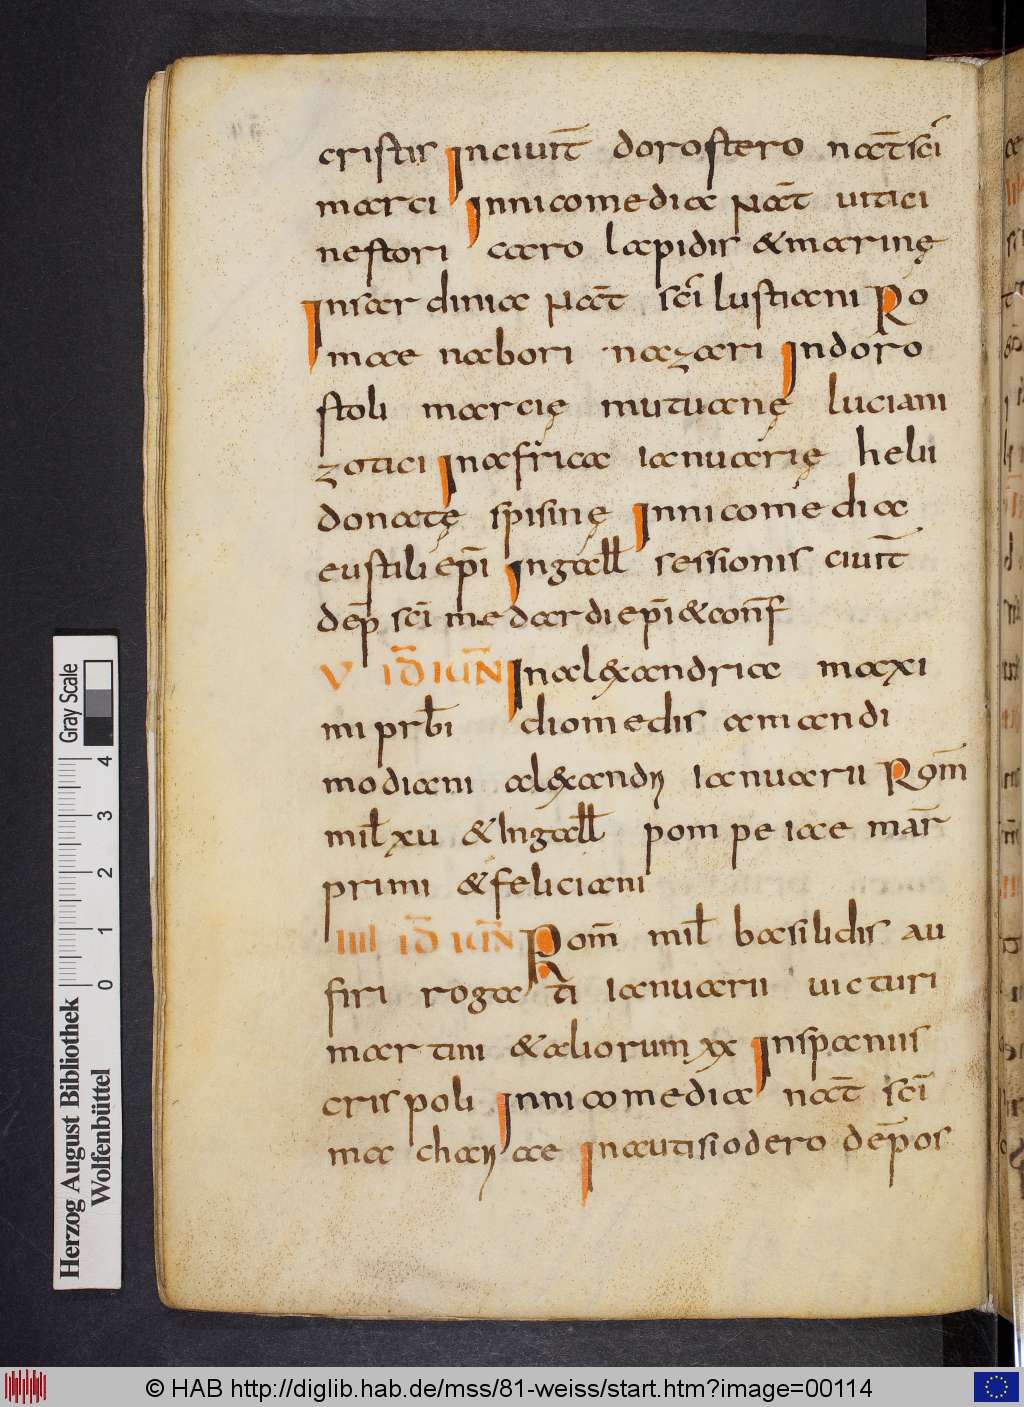 cristis In ciuit̄ dorostero nat̄ sc̄i
marci In nicomedia nat̄ uitaci
nestori caro lapidis & marinę
In sardinia nat̄ sc̄i lustiani Ro
mae nabori nazari In doro
stoli marcię mutuanę luciani
zotaci In africa ianuarię helii
donatę spisinę In nicomedia
eustili ep̄i In gałł sessionis ciuit̄
dep̄ sc̄i medardi ep̄i & conf̄
V ID̄ IUN̄ In alęxandria maxi
mi prb̄i diomedis amandi
modiani alęxandri ianuarii Rom̄
mił xu & In gałł pompeiae mar̄
primi & feliciani
IIII ID̄ IUN̄ Rom̄ mił basilidis au
firi rogati ianuarii uicturi
martini & aliorum xx In spaniis
crispoli In nicomedia nat̄ sc̄i
machariae In autisiodero dep̄os
Gray Scale
4
3
2
1
0
Herzog August Bibliothek
Wolfenbüttel
© HAB http://diglib.hab.de/mss/81-weiss/start.htm?image=00114